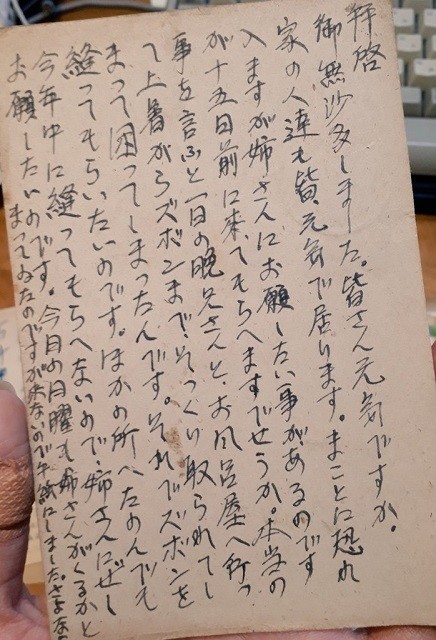 拝啓
御無沙多しました。皆さん元気ですか。
家の人達も皆、元気で居ります。まことに恐れ
入ますが姉さんにお願したい事があるのです
が十五日前に来てもらへますでせうか。本当の
事を言ふと一日の晩兄さんと、お風呂屋へ行っ
て上着からズボンまで、そっくり取られてし
まって困ってしまったんです。それでズボンを
縫ってもらいたいのです。ほかの所へたのんでも
今年中に縫ってもらへないので、姉さんにぜし
お願したいのです。今日の日曜も姉さんがくるかと
まってゐたのですが来ないので手紙にしました。さよなら